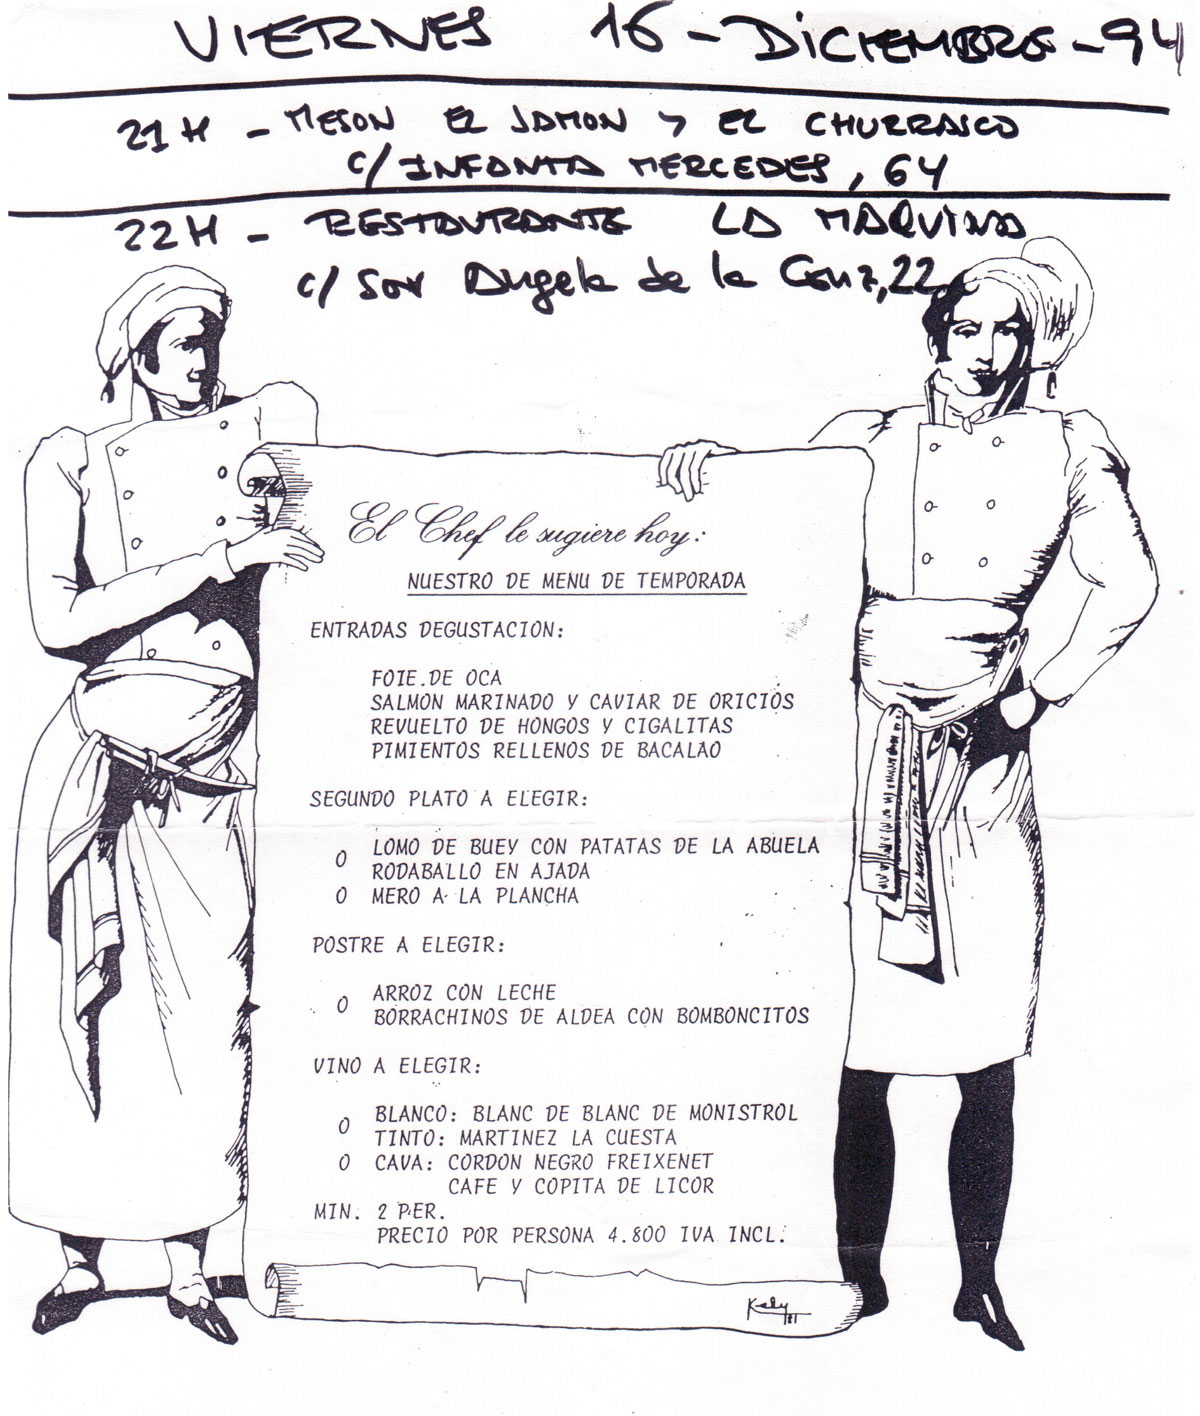 VIERNES 16 - DICIEMBRE - 94
21 H - MESON EL JAMON Y EL CHURRASCO
C/ INFANTA MERCEDES, 64
22 H - RESTAURANTE LA MAQUINA
C/ Sor Angela de la Cruz, 22
El Chef le sugiere hoy:
NUESTRO DE MENU DE TEMPORADA
ENTRADAS DEGUSTACION:
FOIE.DE OCA
SALMON MARINADO Y CAVIAR DE ORICIOS
REVUELTO DE HONGOS Y CIGALITAS
PIMIENTOS RELLENOS DE BACALAO
SEGUNDO PLATO A ELEGIR:
LOMO DE BUEY CON PATATAS DE LA ABUELA
O
RODABALLO EN AJADA
O MERO A LA PLANCHA
POSTRE A ELEGIR:
ARROZ CON LECHE
O
BORRACHINOS DE ALDEA CON BOMBONCITOS
VINO A ELEGIR:
BLANCO: BLANC DE BLANC DE MONISTROL
O
TINTO: MARTINEZ LA CUESTA
O CAVA: CORDON NEGRO FREIXENET
CAFE Y COPITA DE LICOR
MIN. 2 PER.
PRECIO POR PERSONA 4.800 IVA INCL.
Kely
81